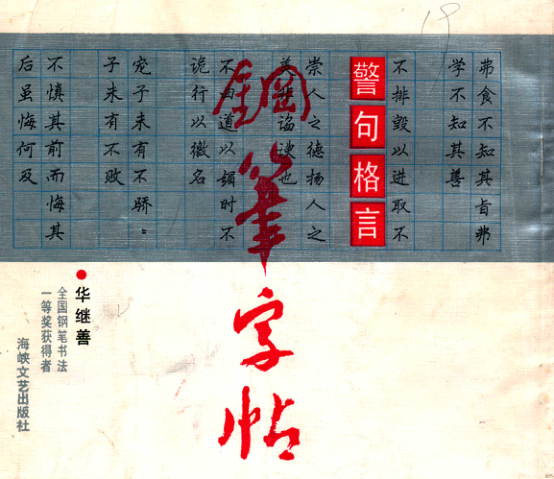 19
弗食不知其旨弗
学不知其善
不排毁以进取不
警句格言
崇人之德扬人之
美非谄谀也
不曲道以媚时不
诡行以徼名
宠子未有不骄〻
子未有不败
不慎其前而悔其
后虽悔何及
鋼筆字帖
华继善
全国钢笔书法
一等奖获得者
海峡文艺出版社